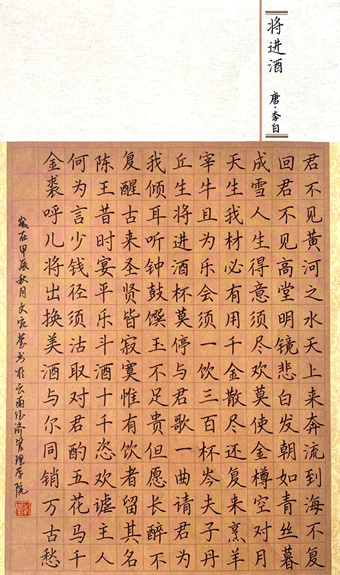 将进酒
唐·李白
君不见黄河之水天上来奔流到海不复
回君不见高堂明镜悲白发朝如青丝暮
成雪人生得意须尽欢莫使金樽空对月
天生我材必有用千金散尽还复来烹羊
宰牛且为乐会须一饮三百杯岑夫子丹
丘生将进酒杯莫停与君歌一曲请君为
我倾耳听钟鼓馔玉不足贵但愿长醉不
复醒古来圣贤皆寂寞惟有饮者留其名
陈王昔时宴平乐斗酒十千恣欢谑主人
何为言少钱径须沽取对君酌五花马千
金裘呼儿将出换美酒与尔同销万古愁
岁在甲辰秋月文书于云南经济管理学院